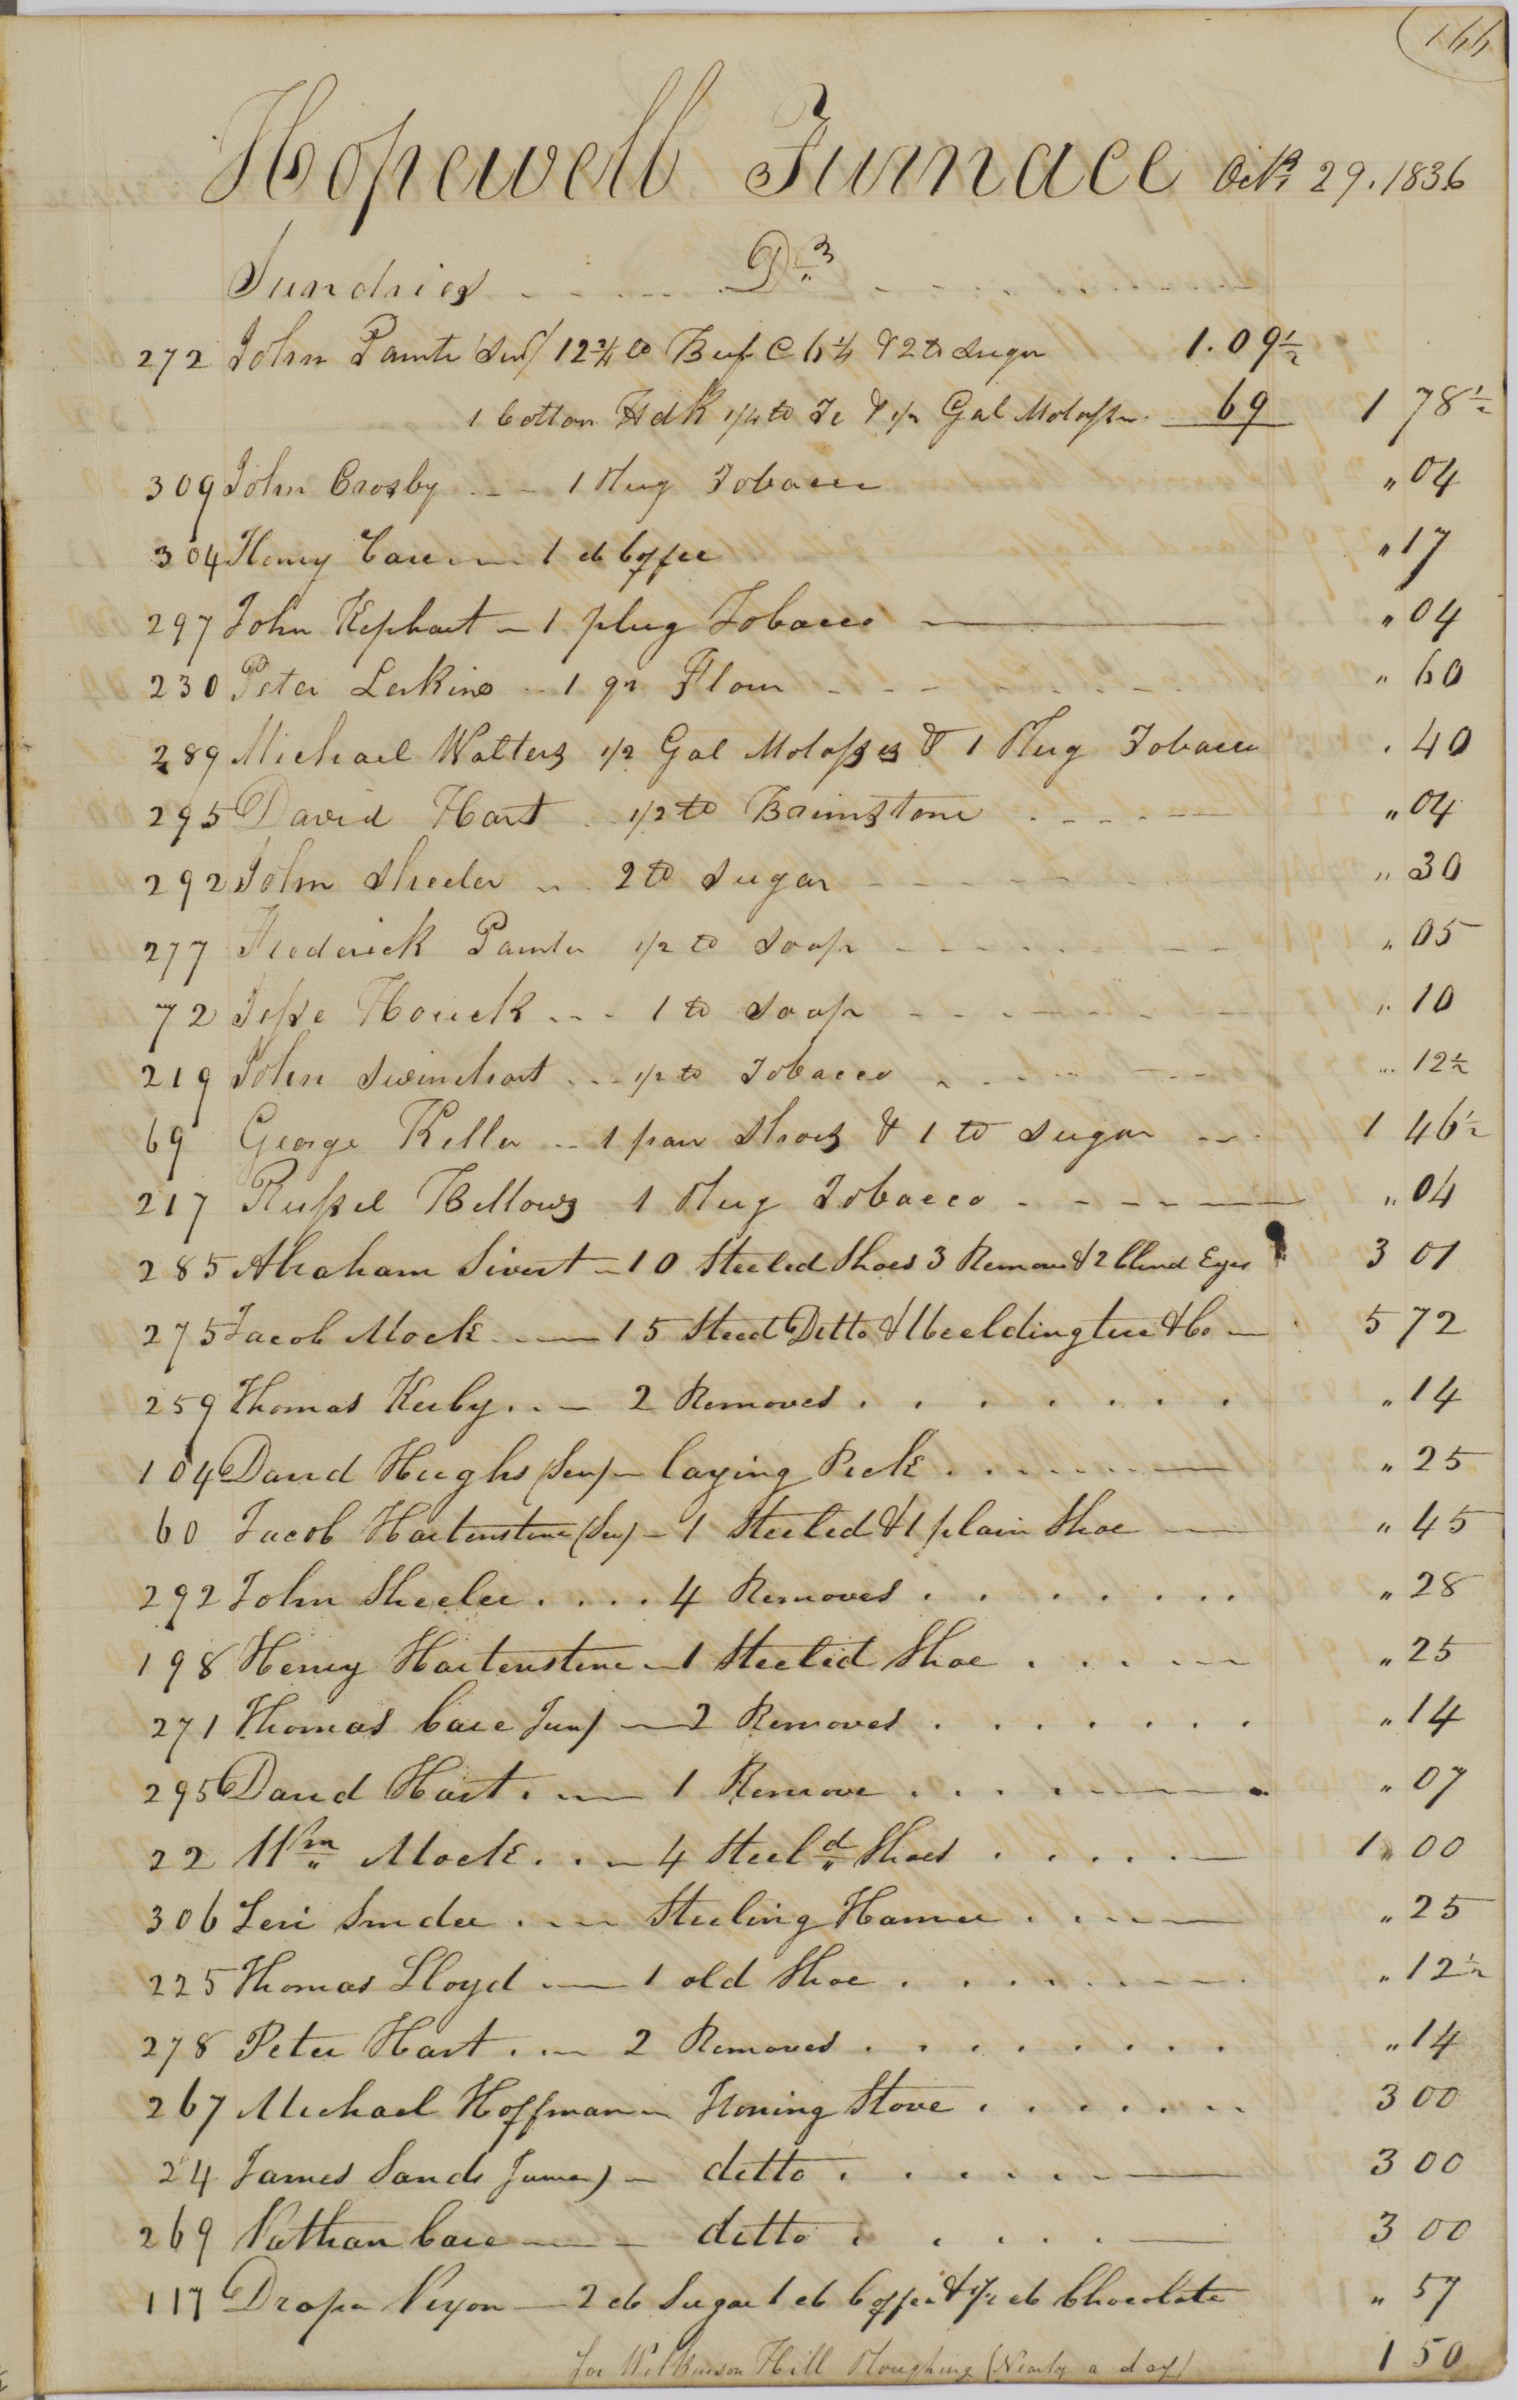 144
Hopewell Furnace Octr 29. 1836
Sundries Drs
272 John Painter Senr 12 3/4 lb Beef @ 6 1/4 & 2 lb Sugar 1.09 1/2
1 Cotton Hdk 1/4 lb Te & 1/2 Gal Molasses 69 1 78 1/2
309 John Crosby 1 Plug Tobacco " 04
304 Henry Care 1 lb Coffee " 17
297 John Kephart 1 plug Tobacco " 04
230 Peter Lerkins 1 qr Flour " 60
289 Michael Walters 1/2 Gal Molasses & 1 Plug Tobacco . 40
295 David Hart 1/2 lb Brimstone " 04
292 John Sheeler 2 lb Sugar " 30
277 Frederick Painter 1/2 lb Soap " 05
72 Jesse Houck 1 lb Soap " 10
219 John Swinehart 1/2 lb Tobacco " 12 1/2
69 George Keller 1 pair Shoes & 1 lb Sugar 1 46 1/2
217 Russel Bellows 1 Plug Tobacco " 04
285 Abraham Sivert 10 Steeled Shoes 3 Removes & 2 blind Eyes 3 01
275 Jacob Mock 15 Steed Ditto & 5 72
259 Thomas Kerby 2 Removes " 14
104 David Hughs (Sen) laying Pick " 25
60 Jacob Hartenstine (Sen) 1 Steeled & 1 plain Shoe " 45
292 John Sheeler 4 Removes " 28
198 Henry Hartenstine 1 Steeled Shoe " 25
271 Thomas Care Junr 2 Removes " 14
295 David Hart 1 Remove " 07
22 Wm Mock 4 Steeld Shoes 1 " 00
306 Levi Smder Steeling Hammer " 25
225 Thomas Lloyd 1 old Shoe " 12 1/2
278 Peter Hart 2 Removes " 14
267 Michael Hoffman Honing Stove 3 00
24 James Sands Junr ditto 3 00
269 Nathan Care ditto 3 00
117 Draper Nixon 2 lb Sugar 1 lb Coffee & 1/2 lb Chocolate " 57
for Wilkinson Hill Ploughing (Nearly a day) 1 50